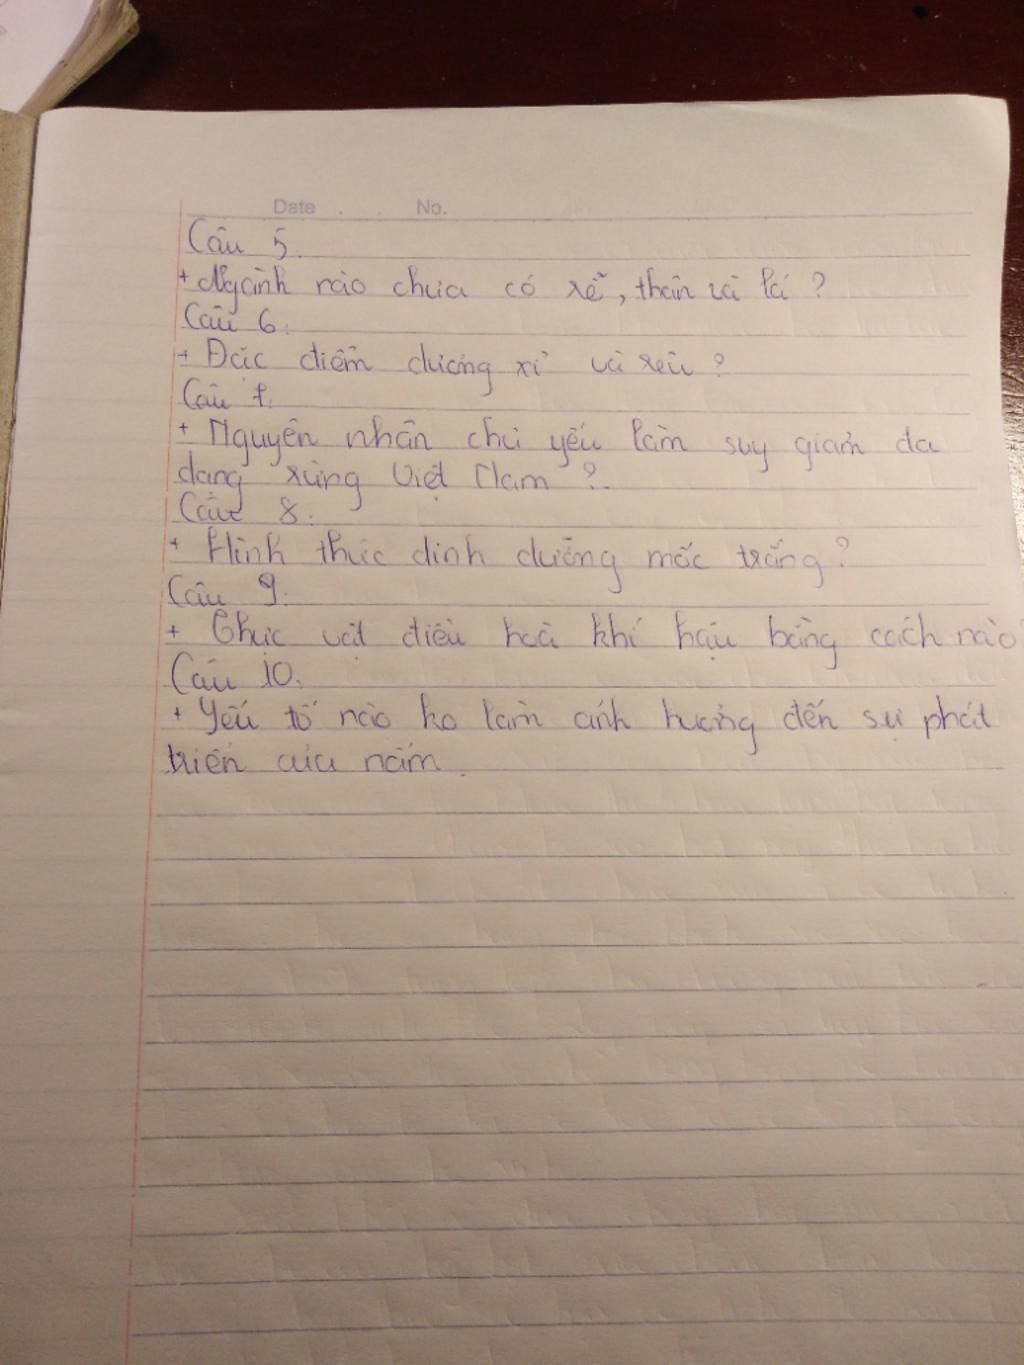 Date No.
Câu 5.
+ Ngành nào chưa có rễ, thân và lá ?
Câu 6.
+ Đặc điểm dương xỉ và rêu ?
Câu 7.
+ Nguyên nhân chủ yếu làm suy giảm đa
dạng rừng Việt Nam ?.
Câu 8.
+ Hình thức dinh dưỡng mốc trắng ?
Câu 9.
+ Thực vật điều hoà khí hậu bằng cách nào
Câu 10.
+ Yếu tố nào ko làm ảnh hưởng đến sự phát
triển của nấm.